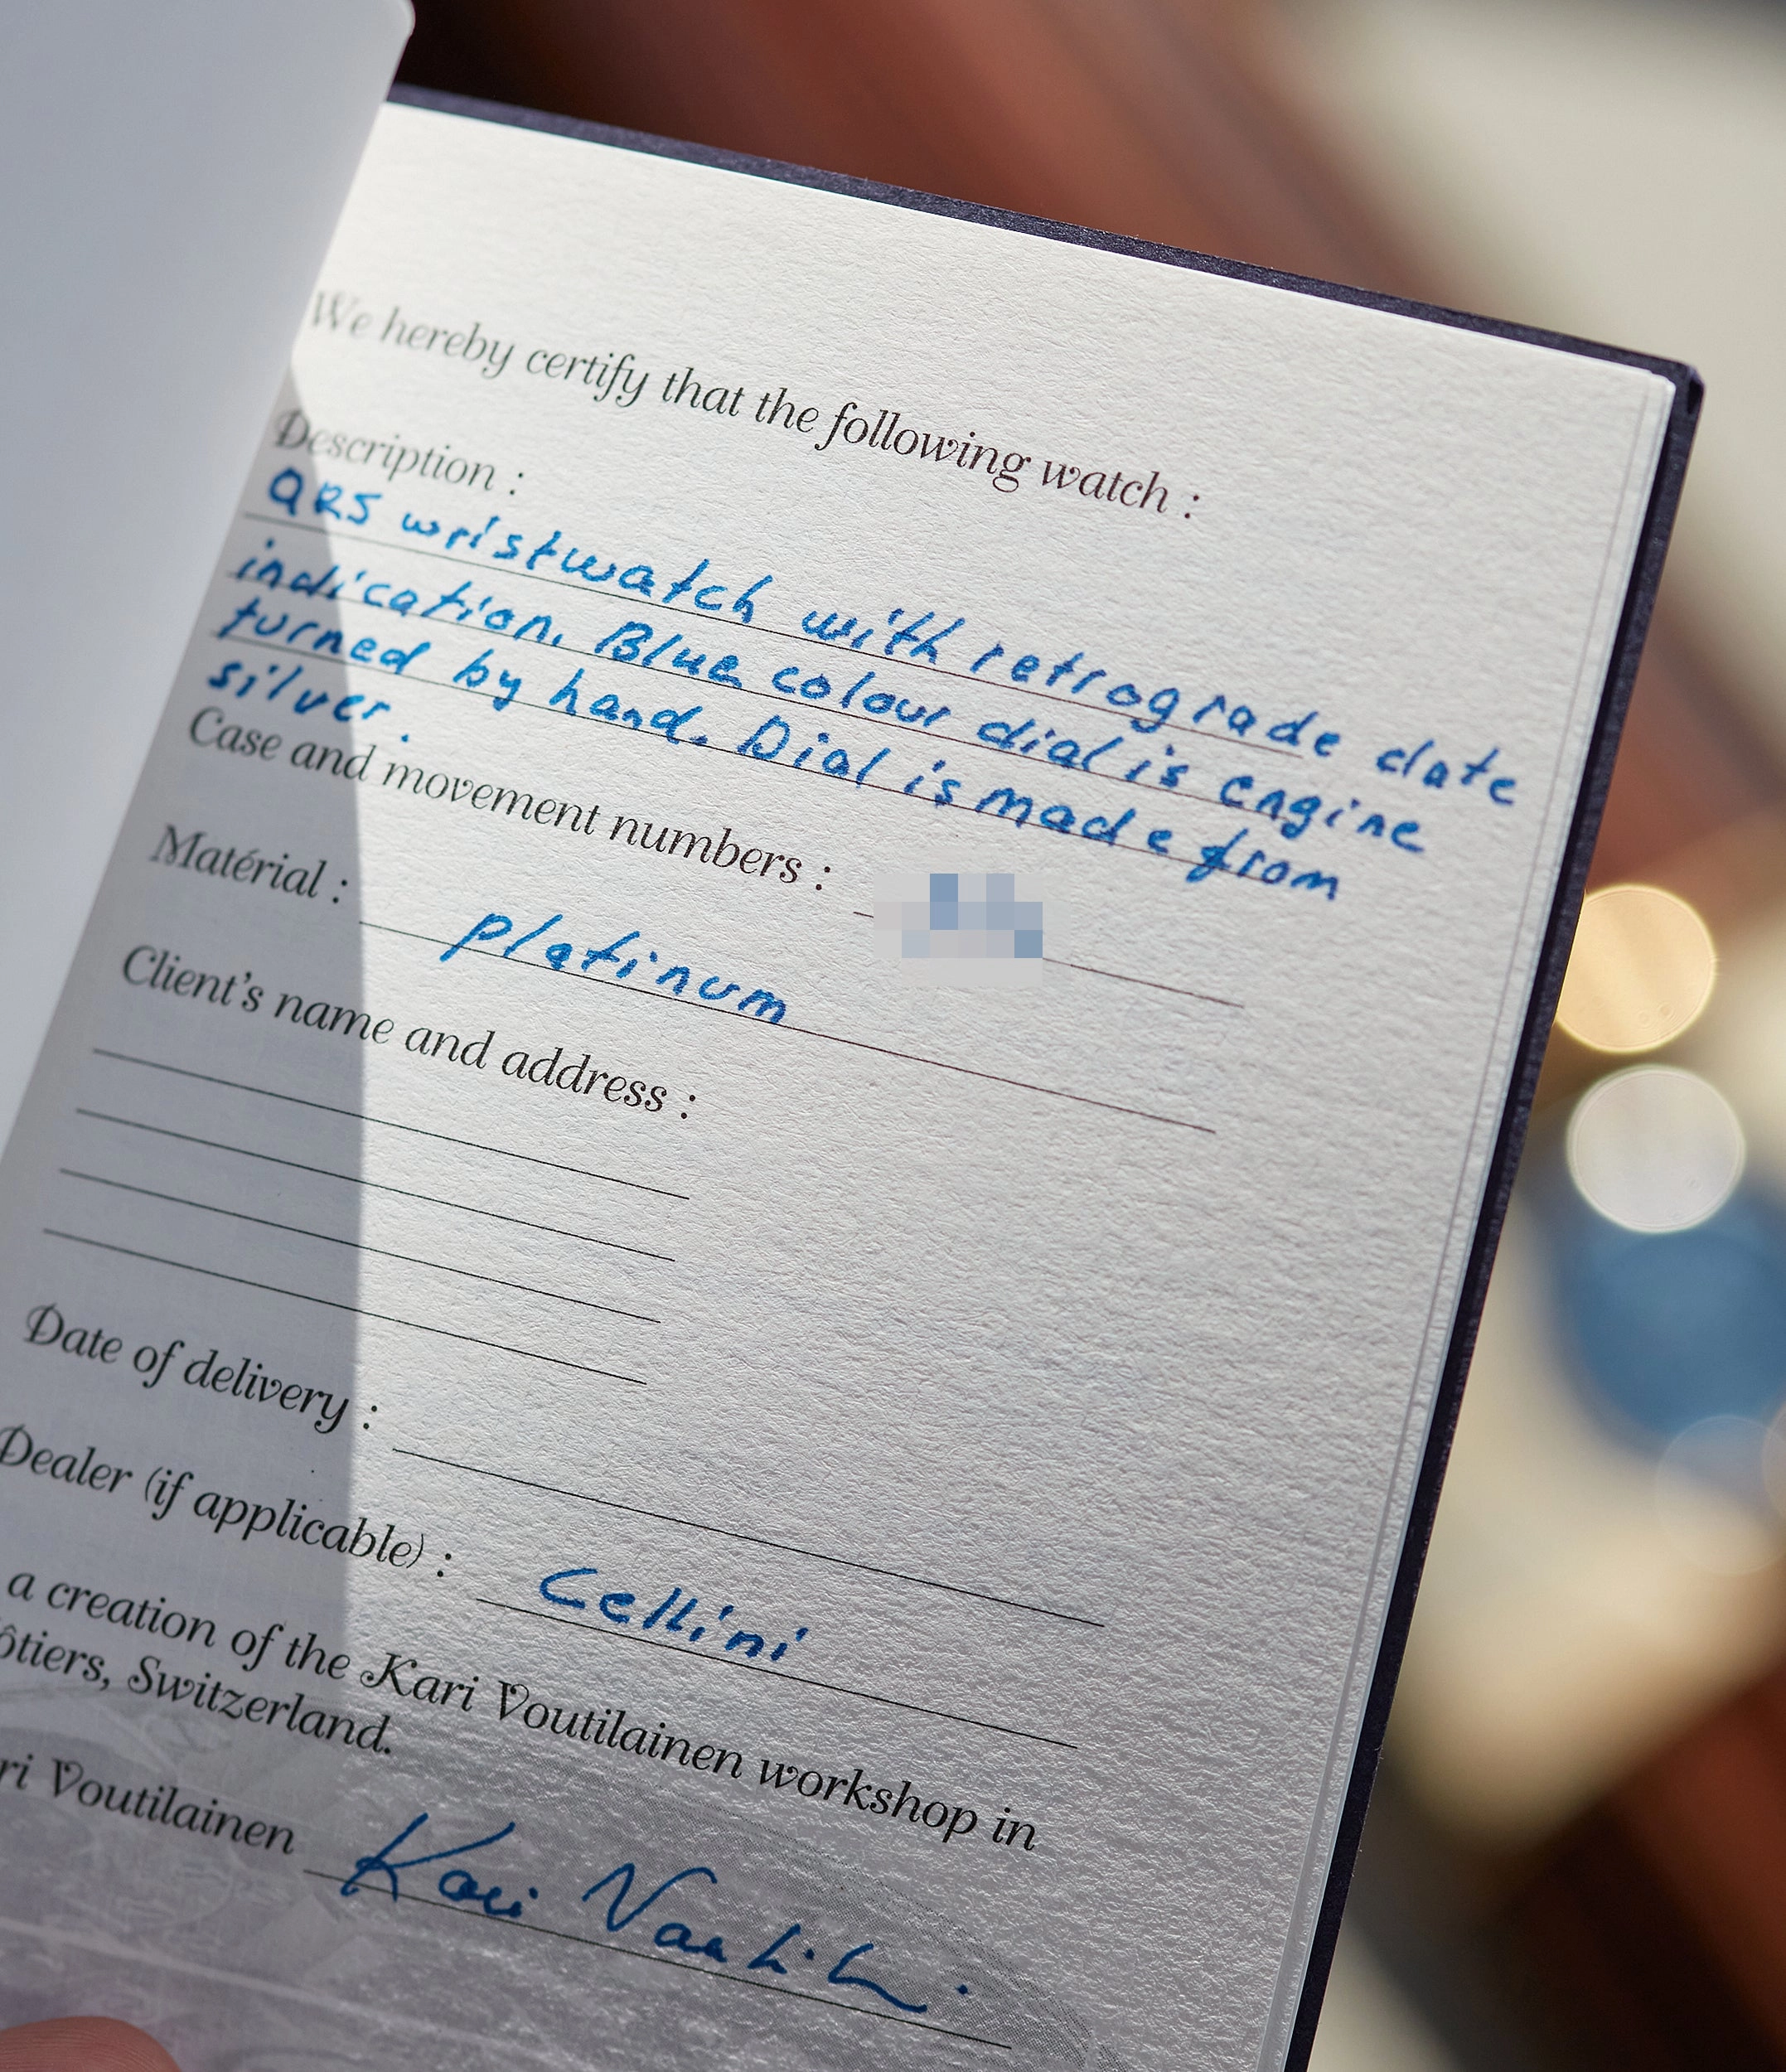 We hereby certify that the following watch :
Description :
QRS wristwatch with retrograde date
indication. Blue colour dial is engine
turned by hand. Dial is made from
silver.
Case and movement numbers :
Matérial : platinum
Client's name and address :
Date of delivery :
Dealer (if applicable) : Cellini
a creation of the Kari Voutilainen workshop in
ôtiers, Switzerland.
ri Voutilainen Kari Voutilainen